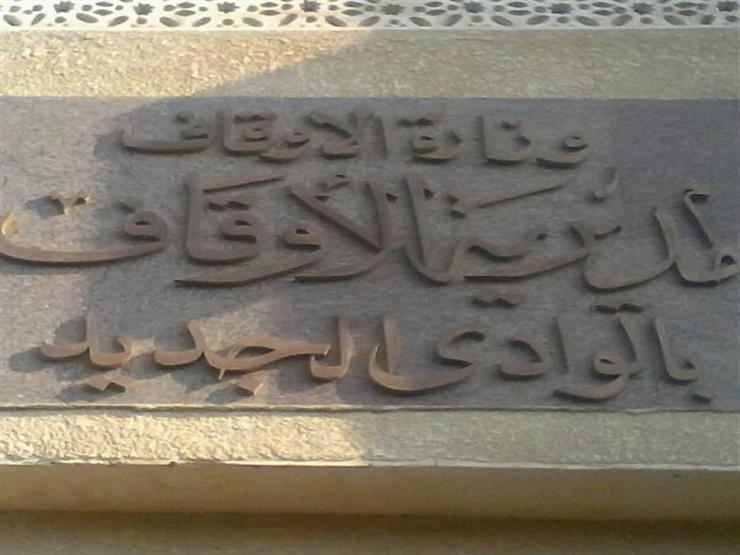 وزارة الاوقاف
مديرية الأوقاف
بالوادى الجديد